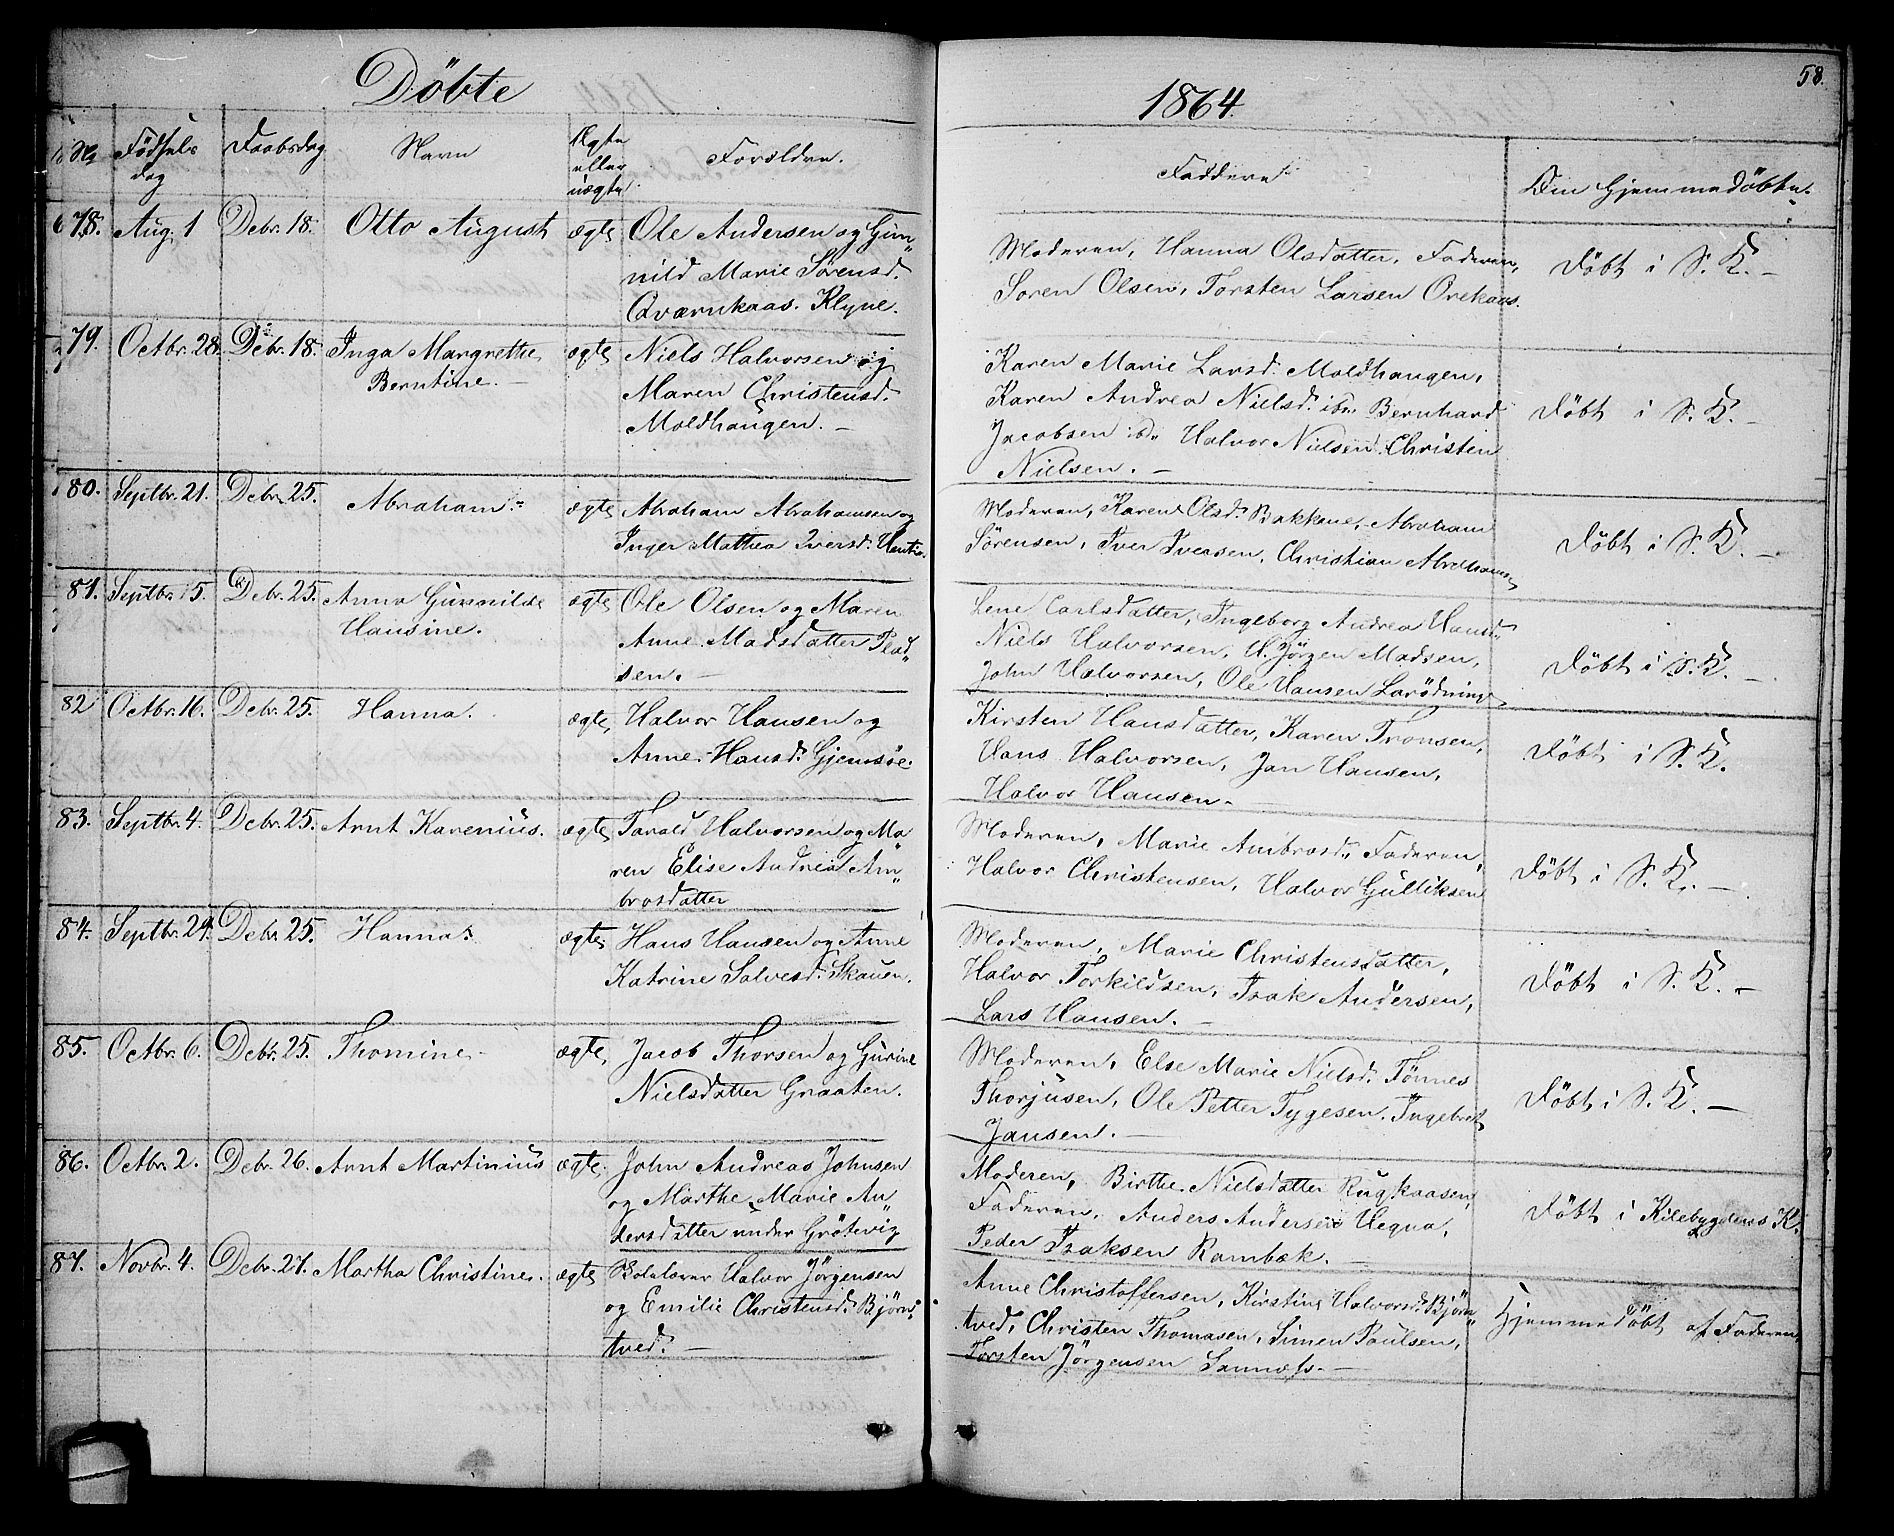 Döbte
1864.
58.
No Födsels dag Daabsdag Navn Ægte eller uægte. Forældre. Faddere. Om Hjemmedöbte.
78. Aug. 1 Debr. 18. Otto August ægte Ole Andersen og Gun„
nild Marie Sørensd.
Qværnkaas. Klyve.
Moderen, Hanna Olsdatter, Faderen,
Søren Olsen, Torsten Larsen Orekaas.
Döbt i S. K. –
79. Octbr. 28. Debr. 18. Inga Margrethe ægte Niels Halvorsen og
Berntine. – Maren Christensd.
Moldhaugen. –
Karen Marie Larsd. Moldhaugen,
Karen Andrea Nielsd. ibn. Bernhard
Jacobsen ibd. Halvor Nielsen. Christen
Nielsen. –
Döbt i S. K. –
80. Septbr. 21. Debr. 25. Abraham. ægte Abraham Abrahamsen og
Inger Mathea Iversd.
Moderen, Karen Olsd. Bakkene, Abraham
Sørensen, Iver Iversen, Christian Abrahams.
Döbt i S. K. –
81. Septbr. 15. Debr. 25. Anna Gunnilde ægte Ole Olsen og Maren
Hansine. Anne Madsdatter Plad„
sen. –
Lene Carlsdatter, Ingeborg Andrea Hansd.
Niels Halvorsen, H. Jørgen Madsen,
John Halvorsen, Ole Hansen Larødninge
Döbt i S. K. –
82 Octbr. 16. Debr. 25. Hanna. ægte, Halvor Hansen og
Anne Hansd. Gjemsöe.
Kirsten Hansdatter, Karen Tronsen,
Hans Halvorsen, Jan Hansen,
Halvor Hansen. –
Döbt i S. K.
83. Septbr. 4. Debr. 25. Arnt Karenius. ægte Tarald Halvorsen og Ma
ren Elise Andrea Am„
brosdatter
Moderen, Marie Ambrosd. Faderen,
Halvor Christensen, Halvor Gulliksen
Döbt i S. K. –
84. Septbr. 24. Debr. 25. Hanna. ægte. Hans Hansen og Anne
Katrine Salvesd. Skauen.
Moderen, Marie Christensdatter,
Halvor Torkildsen, Isak Andersen,
Lars Hansen. –
Döbt i S. K. –
85. Octbr. 6. Debr. 25. Thomine ægte, Jacob Thorsen og Gurine
Nielsdatter Graaten.
Moderen, Else Marie Nielsd. Tönnes
Thorjusen, Ole Petter Tygesen. Ingebret
Jansen. –
Döbt i S. K. –
86. Octbr. 2. Debr. 26. Arnt Martinius ægte. John Andreas Johnsen
og Marthe Marie An„
dersdatter under Grötvig
Moderen, Birthe Nielsdatter Rugkaasen,
Faderen, Anders Andersen Hegna,
Peder Isaksen Rambæk. –
Döbt i Kilebygdens K.
87. Novbr. 4. Debr. 27. Martha Christine. ægte Skolelærer Halvor Jörgensen
og Emilie Christensd. Björn„
tved. –
Anne Christoffersen, Kirstine Halvorsd. Björn„
tved, Christen Thomasen, Simen Paulsen,
Torsten Jörgensen Sannæss. –
Hjemmedöbt af Faderen,